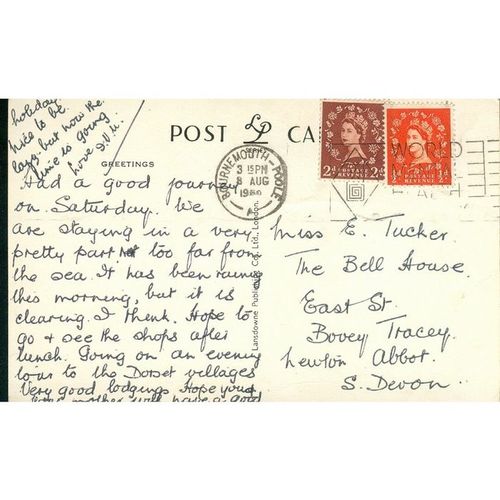 holiday.
nice to be
lazy. but now the
time is going
Love D.V.M.
POST LP CA
GREETINGS
BOURNEMOUTH - POOLE
3 15PM
8 AUG
1960
A
2d 2d
POSTAGE
REVENUE
WORLD
Had a good journey
on Saturday. We
are staying in a very
pretty part not too far from
the sea. It has been raining
this morning, but it is
clearing. I think. Hope to
go & see the shops after
lunch. Going on an evening
tour to the Dorset villages
Very good lodgings. Hope your
mother will have a good
Lansdowne Publishing Co., Ltd., London.
Miss E. Tucker
The Bell House.
East St.
Bovey Tracey.
Newton Abbot.
S. Devon